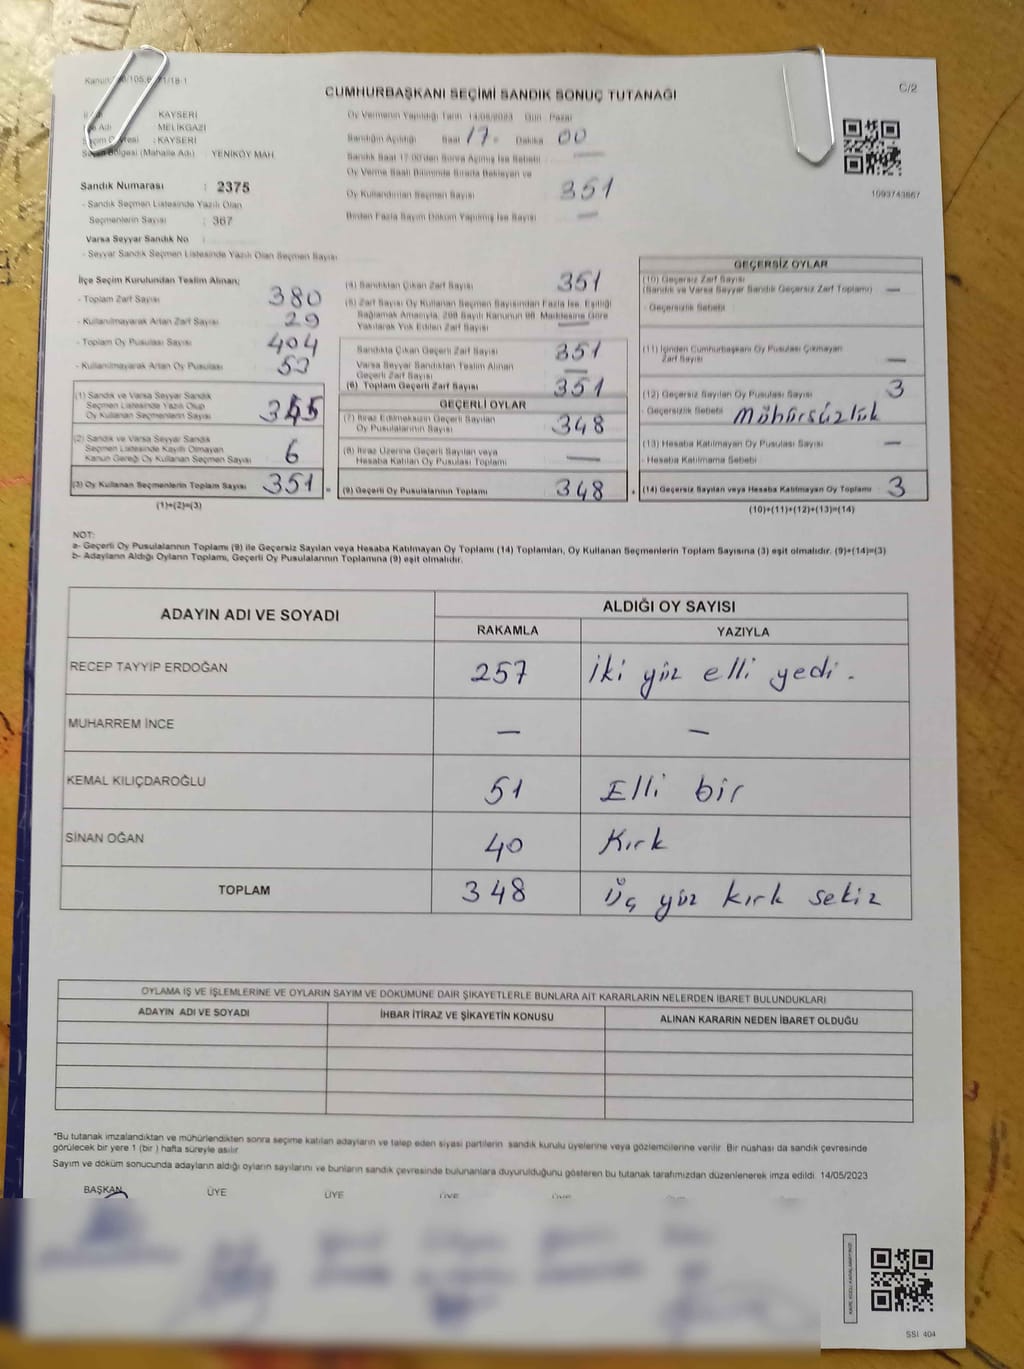 C/2
CUMHURBAŞKANI SEÇİMİ SANDIK SONUÇ TUTANAĞI
KAYSERİ
MELİKGAZİ
: KAYSERİ
(Mahalle Adı) : YENİKÖY MAH.
Sandık Numarası : 2375
- Sandık Seçmen Listesinde Yazılı Olan
Seçmenlerin Sayısı : 367
Varsa Seyyar Sandık No :
- Seyyar Sandık Seçmen Listesinde Yazılı Olan Seçmen Sayısı :
Oy Vermenin Yapıldığı Tarih : 14/05/2023 Gün : Pazar
Sandığın Açıldığı Saat 17 : Dakika 00
Sandık Saat 17:00'den Sonra Açılmış İse Sebebi : —
Oy Verme Saati Bitiminde Sırada Bekleyen ve
Oy Kullandırılan Seçmen Sayısı 351
Birden Fazla Sayım Döküm Yapılmış İse Sayısı —
1093743667
İlçe Seçim Kurulundan Teslim Alınan;
- Toplam Zarf Sayısı 380
- Kullanılmayarak Artan Zarf Sayısı 29
- Toplam Oy Pusulası Sayısı 404
- Kullanılmayarak Artan Oy Pusulası 53
(1) Sandık ve Varsa Seyyar Sandık
Seçmen Listesinde Yazılı Olup
Oy Kullanan Seçmenlerin Sayısı 345
(2) Sandık ve Varsa Seyyar Sandık
Seçmen Listesinde Kayıtlı Olmayan
Kanun Gereği Oy Kullanan Seçmen Sayısı 6
(3) Oy Kullanan Seçmenlerin Toplam Sayısı 351 =
(1)+(2)=(3)
(4) Sandıktan Çıkan Zarf Sayısı 351
(5) Zarf Sayısı Oy Kullanan Seçmen Sayısından Fazla İse, Eşitliği
Sağlamak Amacıyla, 298 Sayılı Kanunun 98. Maddesine Göre
Yakılarak Yok Edilen Zarf Sayısı —
Sandıkta Çıkan Geçerli Zarf Sayısı 351
Varsa Seyyar Sandıktan Teslim Alınan
Geçerli Zarf Sayısı —
(6) Toplam Geçerli Zarf Sayısı 351
GEÇERLİ OYLAR
(7) İtiraz Edilmeksizin Geçerli Sayılan
Oy Pusulalarının Sayısı 348
(8) İtiraz Üzerine Geçerli Sayılan veya
Hesaba Katılan Oy Pusulası Toplamı —
(9) Geçerli Oy Pusulalarının Toplamı 348 +
GEÇERSİZ OYLAR
(10) Geçersiz Zarf Sayısı
(Sandık ve Varsa Seyyar Sandık Geçersiz Zarf Toplamı) —
- Geçersizlik Sebebi :
(11) İçinden Cumhurbaşkanı Oy Pusulası Çıkmayan
Zarf Sayısı —
(12) Geçersiz Sayılan Oy Pusulası Sayısı 3
Geçersizlik Sebebi : Mühürsüzlük
(13) Hesaba Katılmayan Oy Pusulası Sayısı —
- Hesaba Katılmama Sebebi :
(14) Geçersiz Sayılan veya Hesaba Katılmayan Oy Toplamı 3
(10)+(11)+(12)+(13)=(14)
NOT:
a- Geçerli Oy Pusulalarının Toplamı (9) ile Geçersiz Sayılan veya Hesaba Katılmayan Oy Toplamı (14) Toplamları, Oy Kullanan Seçmenlerin Toplam Sayısına (3) eşit olmalıdır. (9)+(14)=(3)
b- Adayların Aldığı Oyların Toplamı, Geçerli Oy Pusulalarının Toplamına (9) eşit olmalıdır.
ADAYIN ADI VE SOYADI ALDIĞI OY SAYISI
RAKAMLA YAZIYLA
RECEP TAYYİP ERDOĞAN 257 İki yüz elli yedi.
MUHARREM İNCE — —
KEMAL KILIÇDAROĞLU 51 Elli bir
SİNAN OĞAN 40 Kırk
TOPLAM 348 Üç yüz kırk sekiz
OYLAMA İŞ VE İŞLEMLERİNE VE OYLARIN SAYIM VE DÖKÜMÜNE DAİR ŞİKAYETLERLE BUNLARA AİT KARARLARIN NELERDEN İBARET BULUNDUKLARI
ADAYIN ADI VE SOYADI İHBAR İTİRAZ VE ŞİKAYETİN KONUSU ALINAN KARARIN NEDEN İBARET OLDUĞU
*Bu tutanak imzalandıktan ve mühürlendikten sonra seçime katılan adayların ve talep eden siyasi partilerin sandık kurulu üyelerine veya gözlemcilerine verilir. Bir nüshası da sandık çevresinde
görülecek bir yere 1 (bir) hafta süreyle asılır
Sayım ve döküm sonucunda adayların aldığı oyların sayılarını ve bunların sandık çevresinde bulunanlara duyurulduğunu gösteren bu tutanak tarafımızdan düzenlenerek imza edildi. 14/05/2023
BAŞKAN ÜYE ÜYE ÜYE ÜYE
SSİ 404